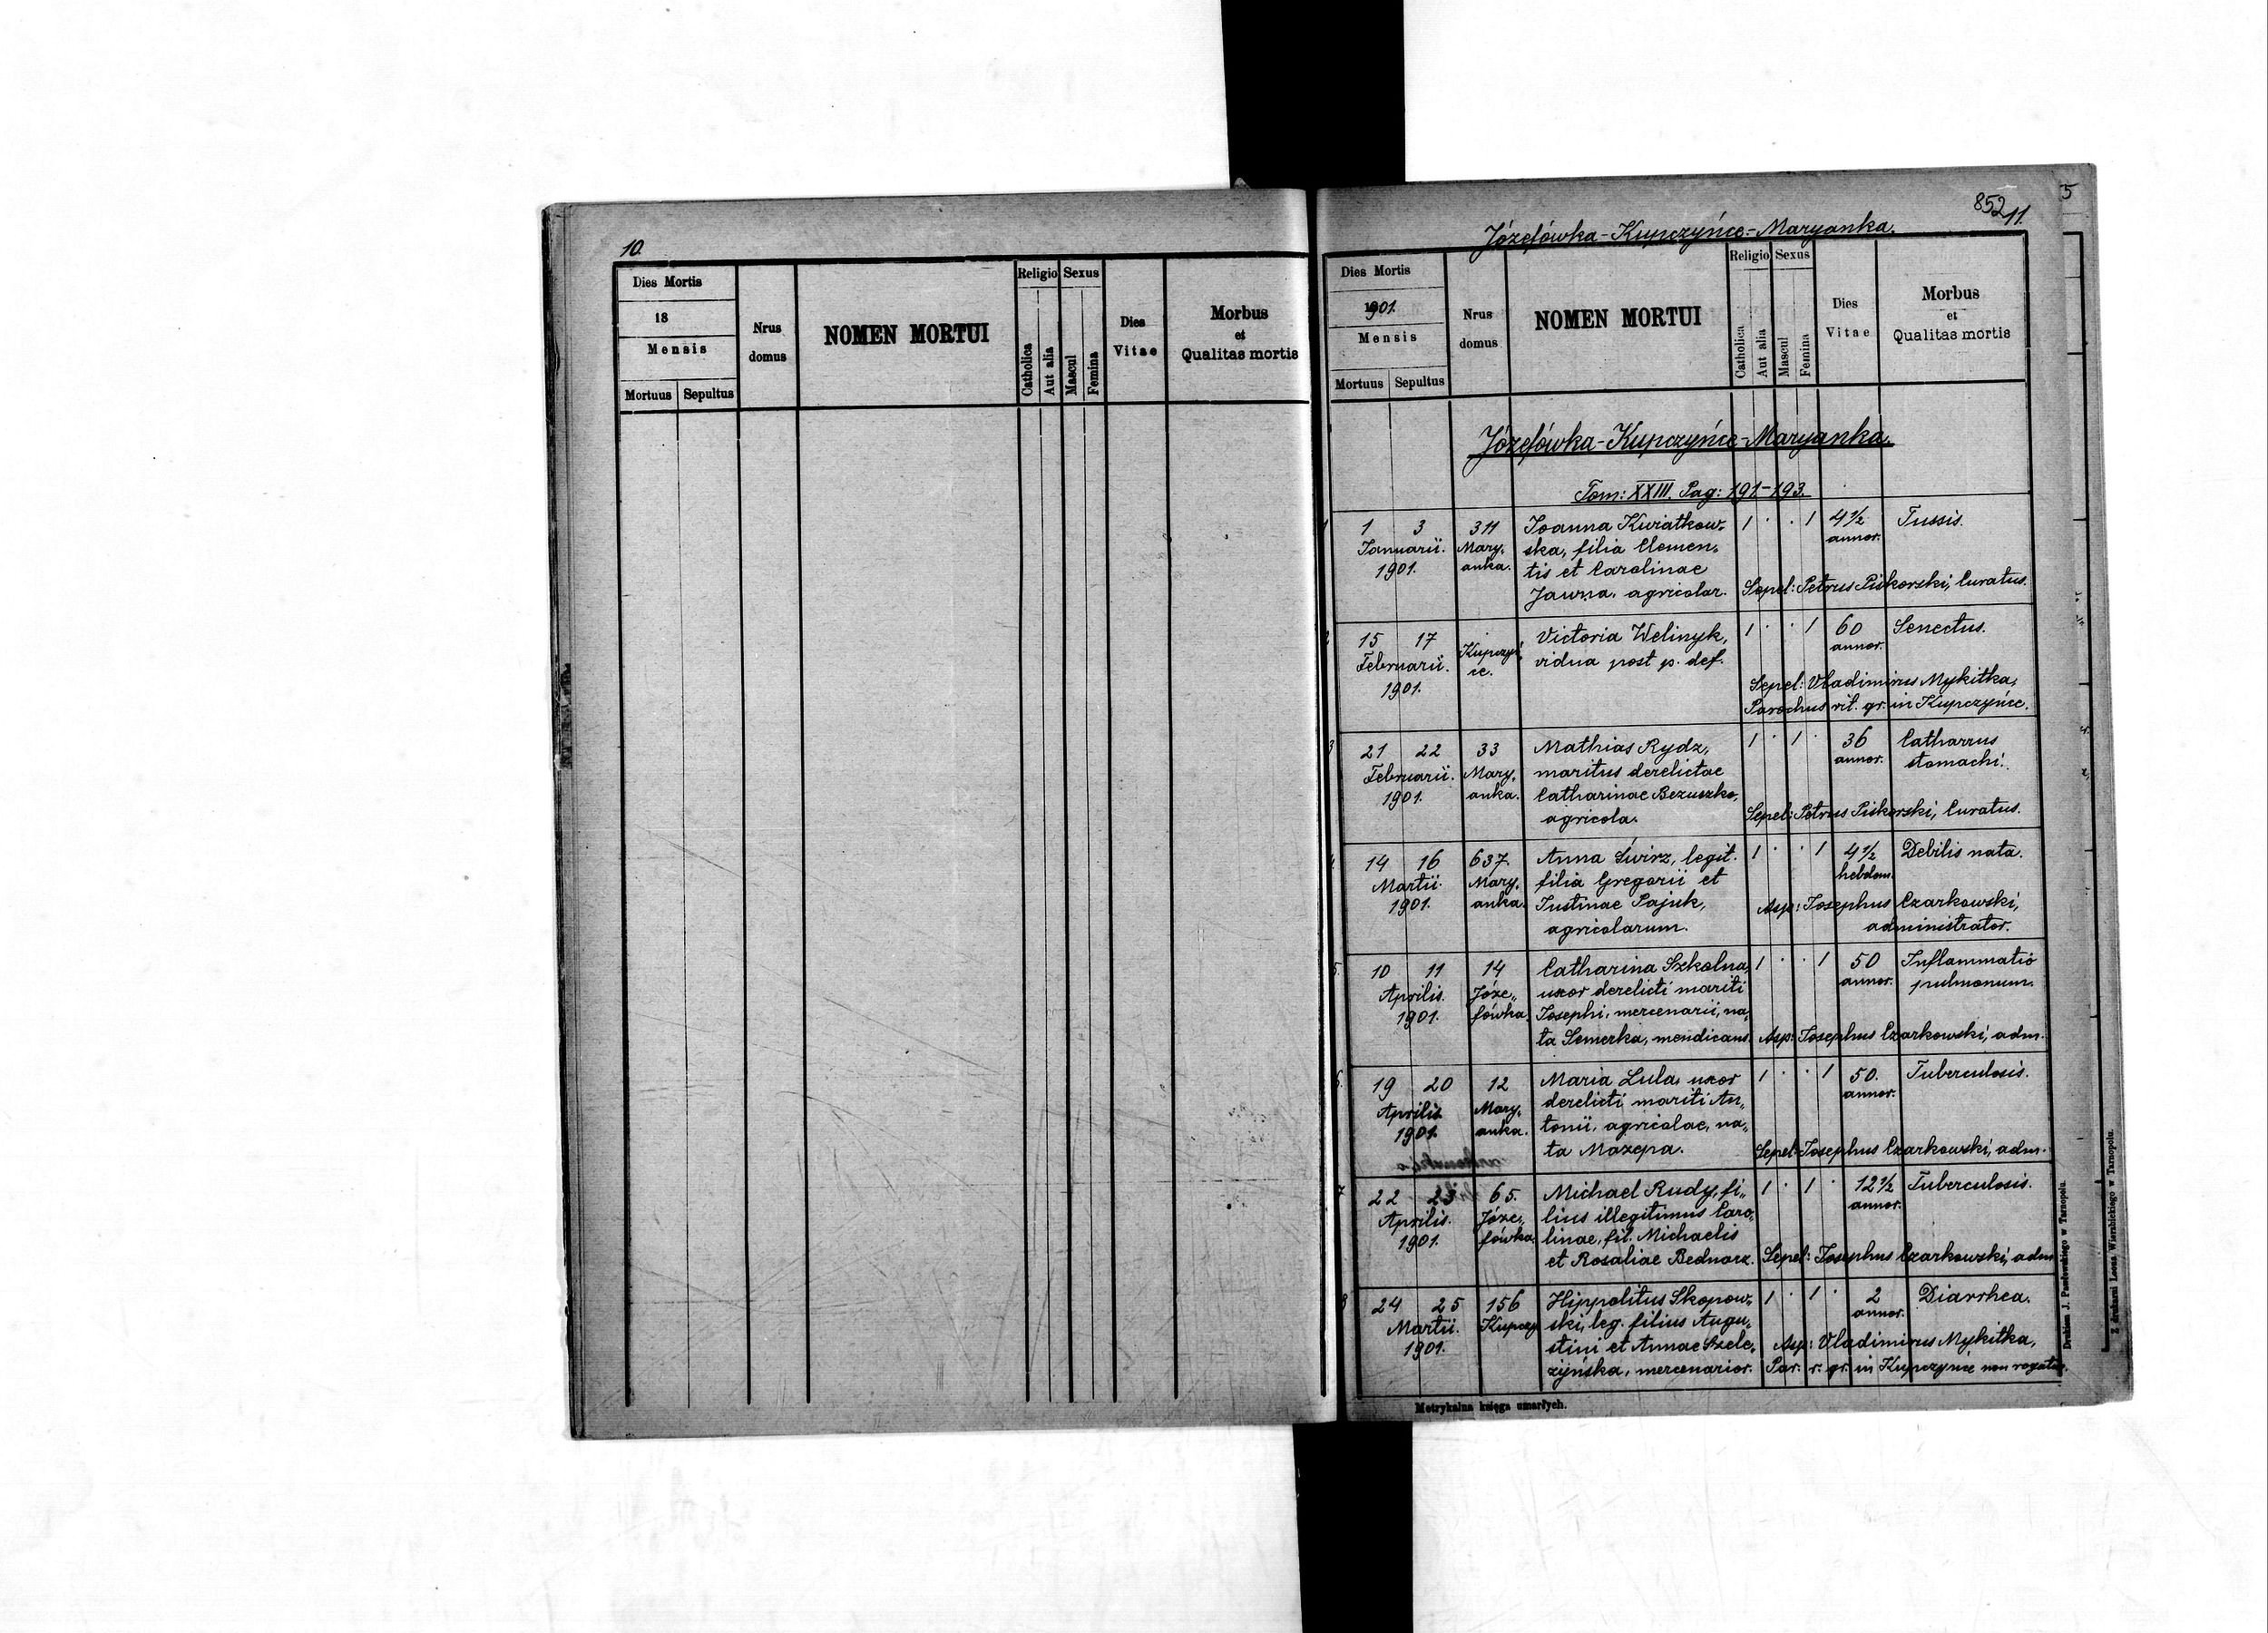 10.
Dies Mortis
18
Mensis
Mortuus
Sepultus
Nrus
domus
NOMEN MORTUI
Religio
Catholica
Aut alia
Sexus
Mascul
Femina
Dies
Vitae
Morbus
et
Qualitas mortis
852
11.
5
Józefówka-Kupczyńce-Maryanka.
Dies Mortis
1901.
Mensis
Mortuus
Sepultus
Nrus
domus
NOMEN MORTUI
Religio
Catholica
Aut alia
Sexus
Mascul
Femina
Dies
Vitae
Morbus
et
Qualitas mortis
Józefówka-Kupczyńce-Maryanka.
Tom: XXIII. Pag: 191-193.
1
1 3
Januarii.
1901.
311
Mary„
anka.
Joanna Kwiatkow„
ska, filia Clemen„
tis et Carolinae
Jawna, agricolar.
1 . . 1
4 1/2
annor.
Tussis.
Sepel: Petrus Piskorski, Curatus.
2
15 17
Februarii.
1901.
Kupczyń„
ce.
Victoria Welinyk,
vidua post p. def.
1 . . 1
60
annor.
Senectus.
Sepel: Vladimirus Mykitka,
Parochus rit. gr. in Kupczyńce.
3
21 22
Februarii.
1901.
33
Mary„
anka.
Mathias Rydz,
maritus derelictae
Catharinae Bezuszko,
agricola.
1 . 1 .
36
annor.
Catharrus
stomachi.
Sepel: Petrus Piskorski, Curatus.
4
14 16
Martii.
1901.
637.
Mary„
anka.
Anna Świrz, legit.
filia Gregorii et
Justinae Pajuk,
agricolarum.
1 . . 1
4 1/2
hebdom.
Debilis nata.
Asp: Josephus Czarkowski,
administrator.
5.
10 11
Aprilis.
1901.
14
Józe„
fówka.
Catharina Szkolna,
uxor derelicti mariti
Josephi, mercenarii, na„
ta Semerka, mendicans.
1 . . 1
50
annor.
Inflammatio
pulmonum.
Asp: Josephus Czarkowski, adm.
6.
19 20
Aprilis.
1901.
12
Mary„
anka.
Maria Lula, uxor
derelicti mariti An„
tonii, agricolae, na„
ta Mazepa.
1 . . 1
50.
annor.
Tuberculosis.
Sepel: Josephus Czarkowski, adm.
7
22 23
Aprilis.
1901.
65.
Józe„
fówka.
Michael Rudy, fi„
lius illegitimus Caro„
linae, fil. Michaelis
et Rosaliae Bednarz.
1 . 1 .
12 1/2
annor.
Tuberculosis.
Sepel: Josephus Czarkowski, adm
8
24 25
Martii.
1901.
156
Kupczy
Hippolitus Skopow„
ski, leg. filius Augu„
stini et Annae Szele„
zyńska, mercenarior.
1 . 1 .
2
annor.
Diarrhea.
Asp: Vladimirus Mykitka,
Par. r. gr. in Kupczyńce non rogatus.
Metrykalna księga umarłych.
Drukiem J. Pawłowskiego w Tarnopolu.
Z drukarni Leona Wierzbickiego w Tarnopolu.